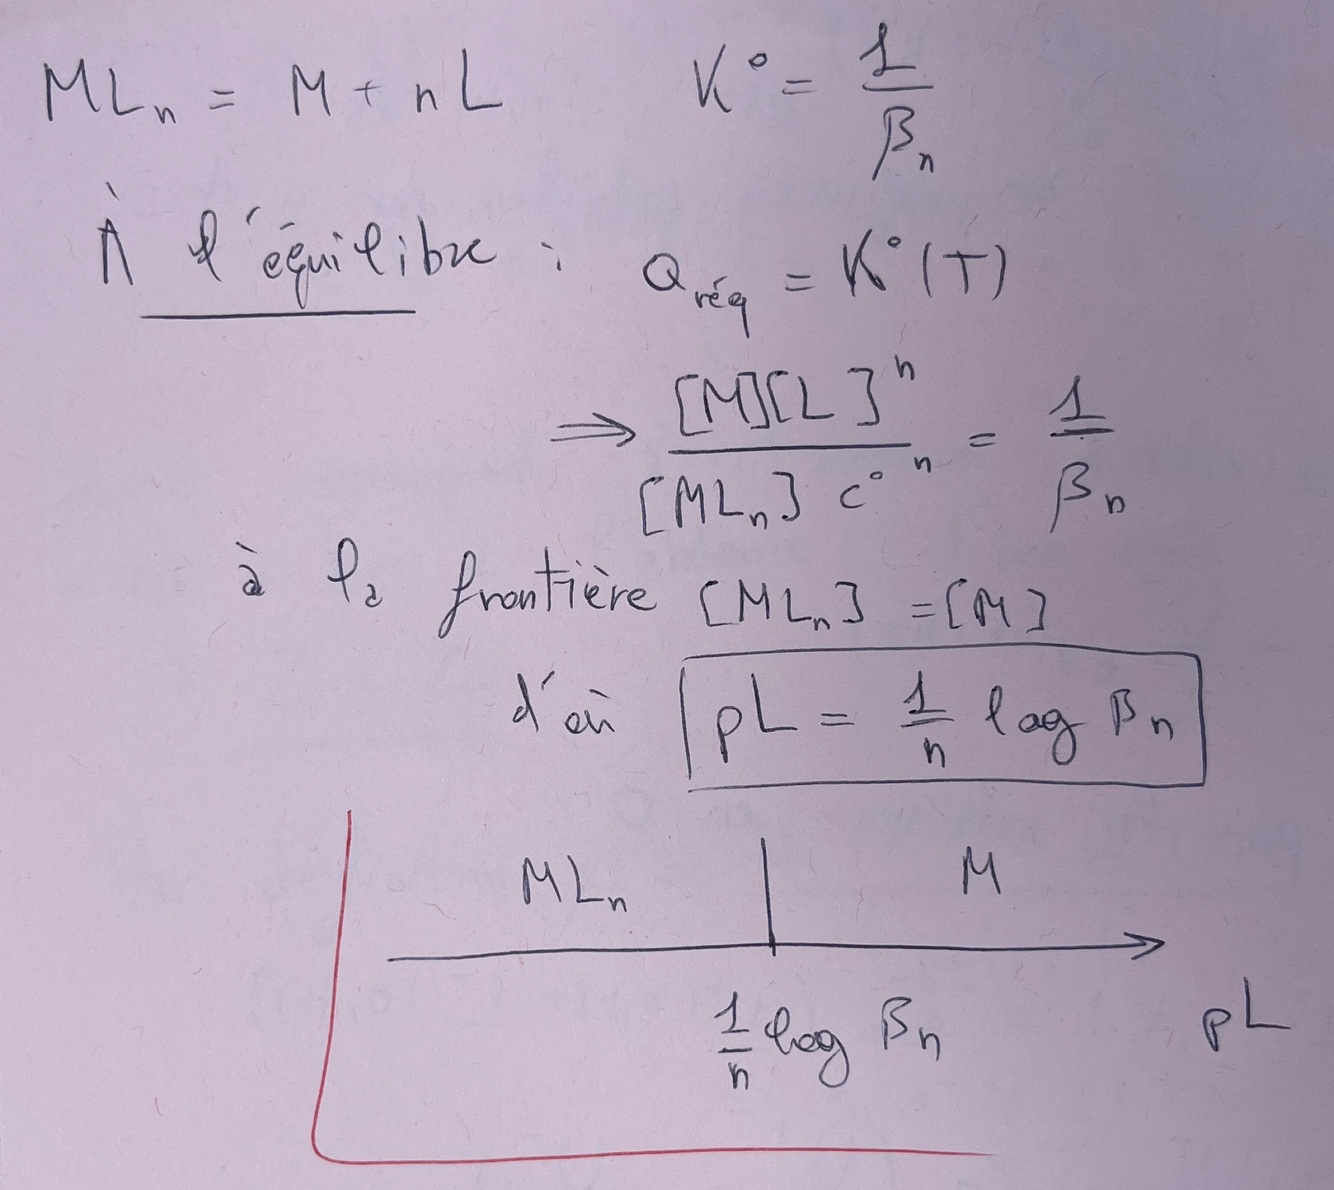 MLₙ = M + nL K° = 1/βₙ
À l'équilibre : Q_réq = K°(T)
⟹ [M][L]ⁿ / [MLₙ] c°ⁿ = 1/βₙ
à la frontière [MLₙ] = [M]
d'où pL = 1/n log βₙ
MLₙ M
1/n log βₙ pL